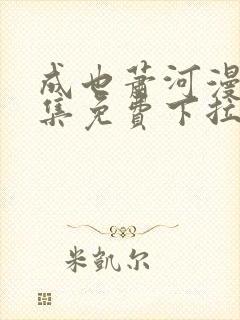 成也萧河漫
集免費下拉
米凱尔